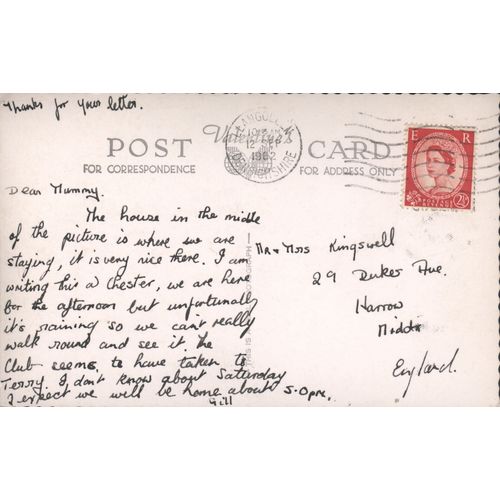 Thanks for your letter.
LLANGOLLEN
12
1962
DENBIGHSHIRE
Valentine's
POST CARD
FOR CORRESPONDENCE
FOR ADDRESS ONLY
E R
POSTAGE
2½
Dear Mummy.
The house in the middle
of the picture is where we are
staying, it is very nice there. I am
writing this a Chester, we are here
for the afternoon but unfortunatly
it's raining so we can't really
walk round and see it. The
Club seems to have taken to
Terry. I don't know about Saturday
I expect we will be home about 5.0pm.
Gill
Mr & Mrs Kingswell
29 Dukes Ave.
Harrow
Middx
England.